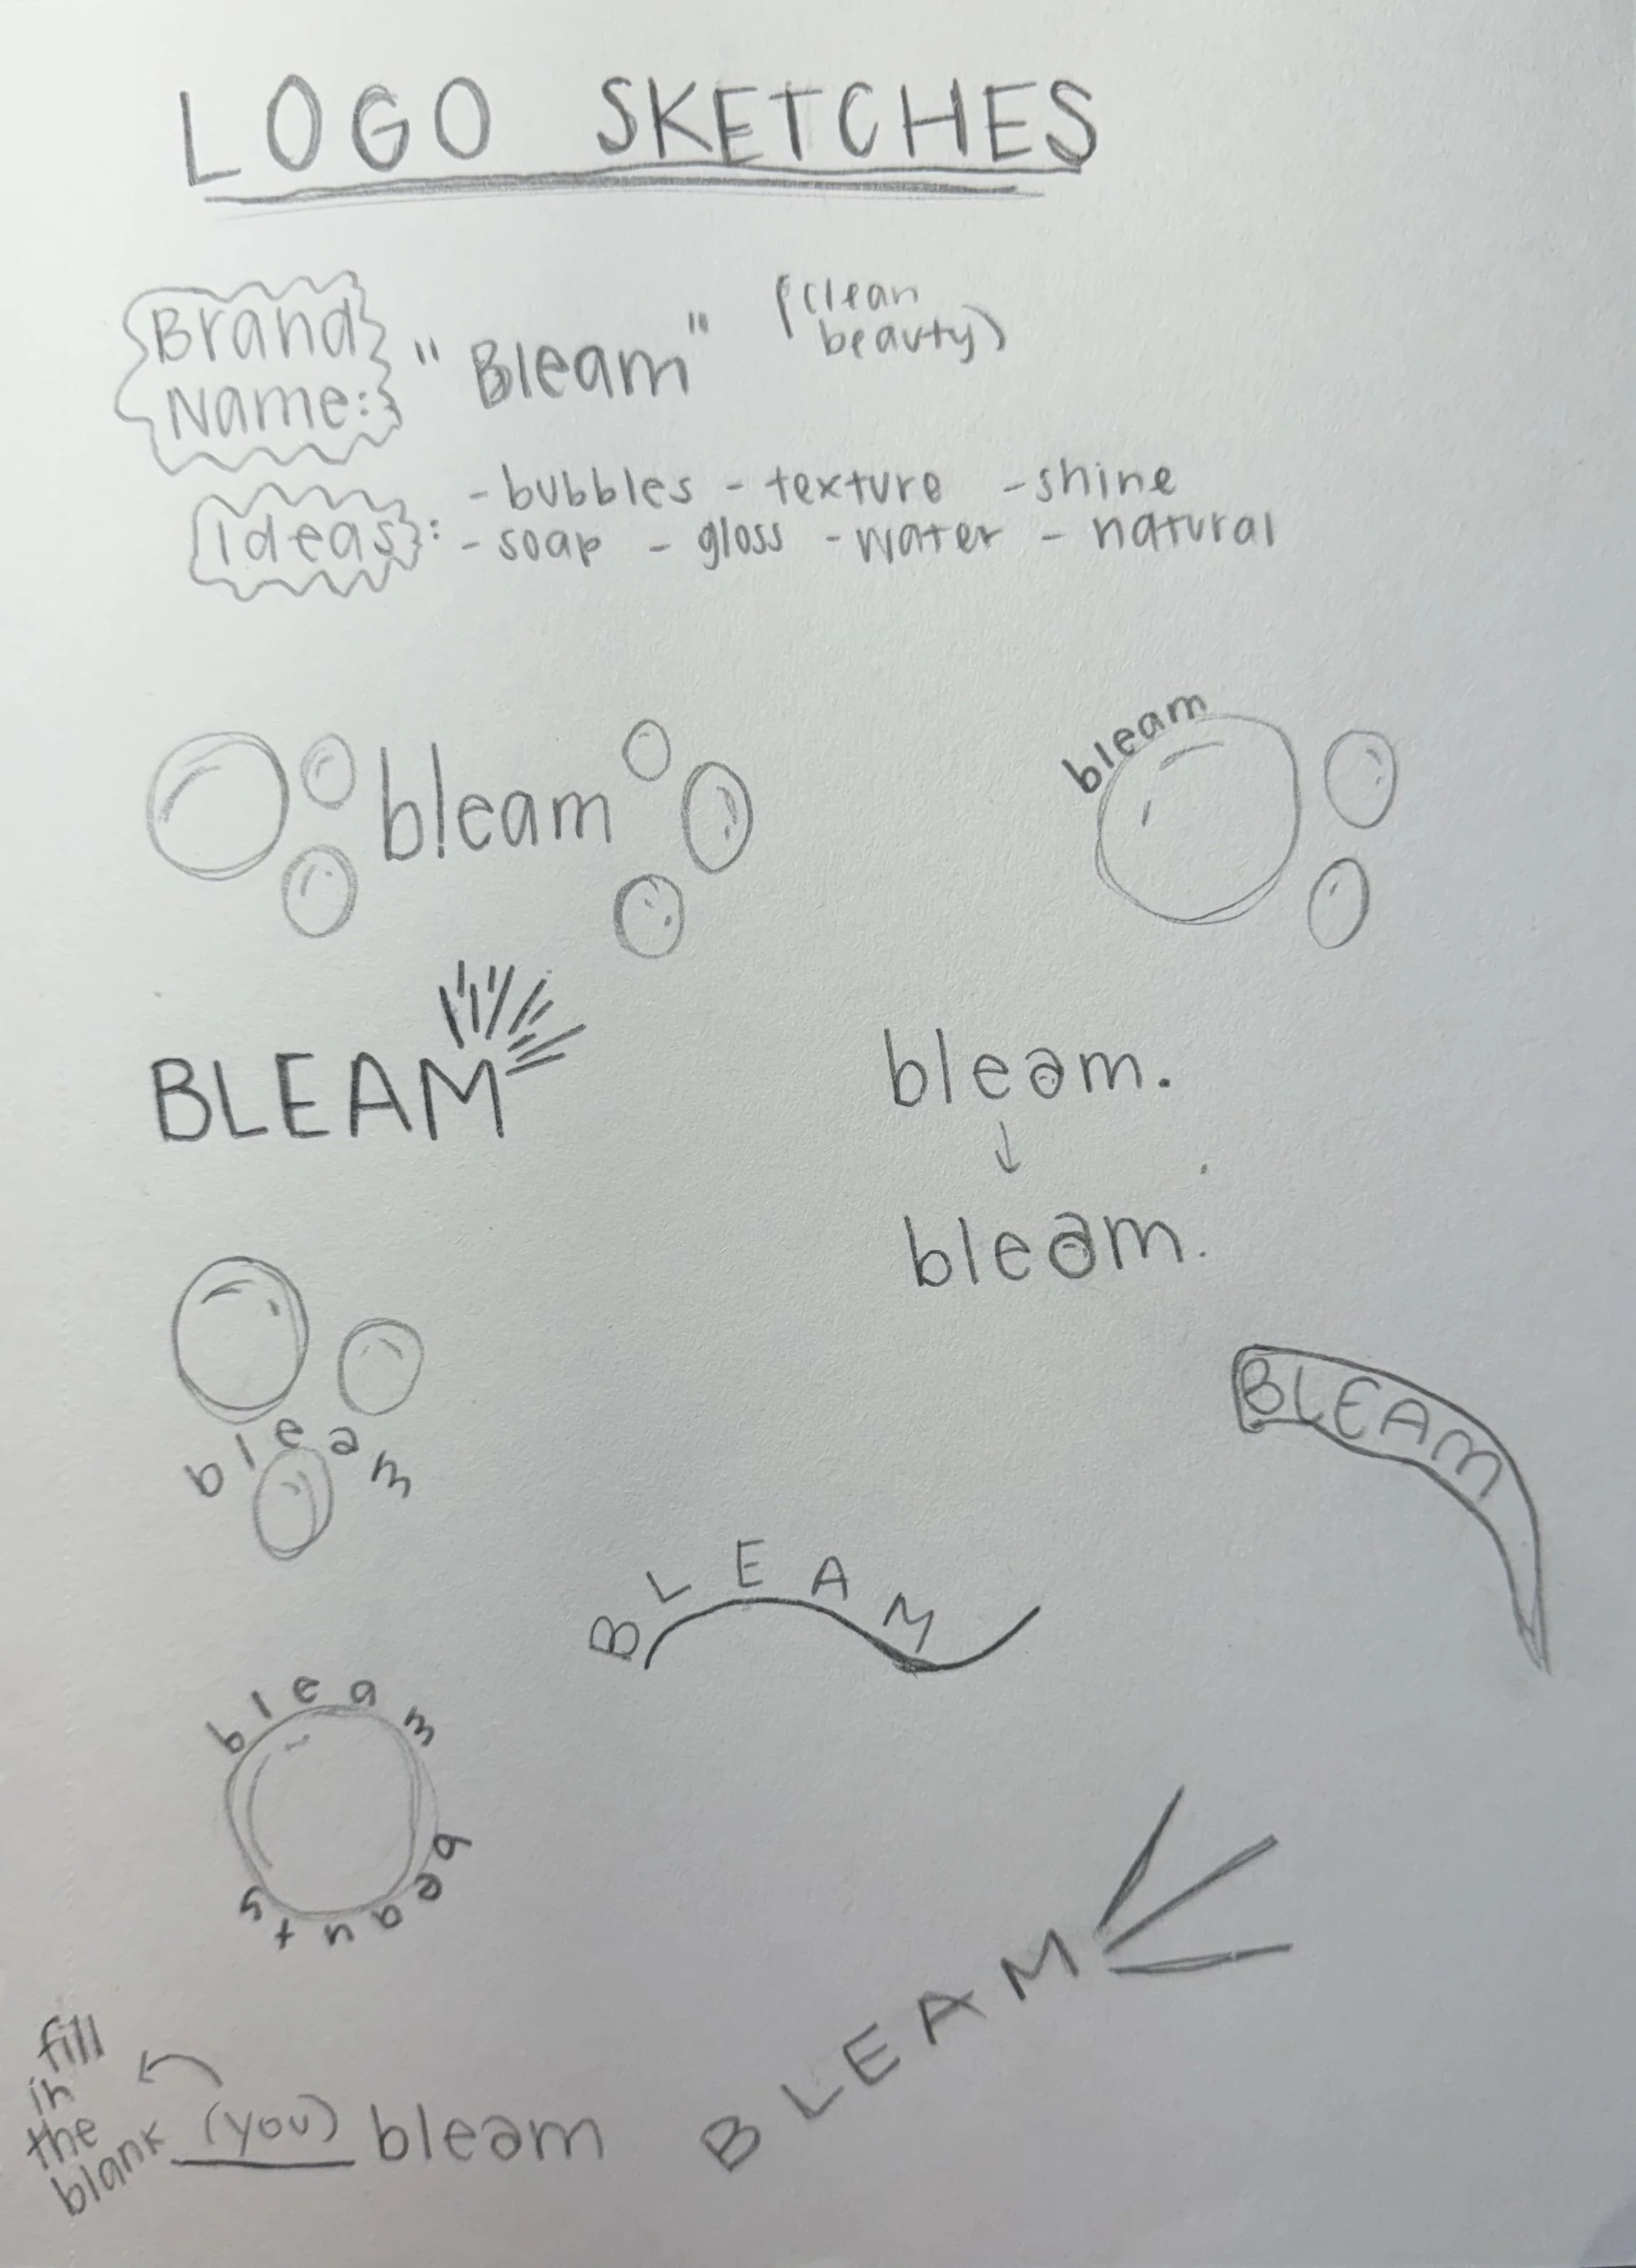 LOGO SKETCHES
Brand
Name:
"Bleam"
(clean
beauty)
Ideas:
- bubbles - texture - shine
- soap - gloss - water - natural
bleam
bleam
BLEAM
bleam.
bleam.
bleam
BLEAM
BLEAM
bleam
beauty
BLEAM
fill
in
the
blank
(you) bleam